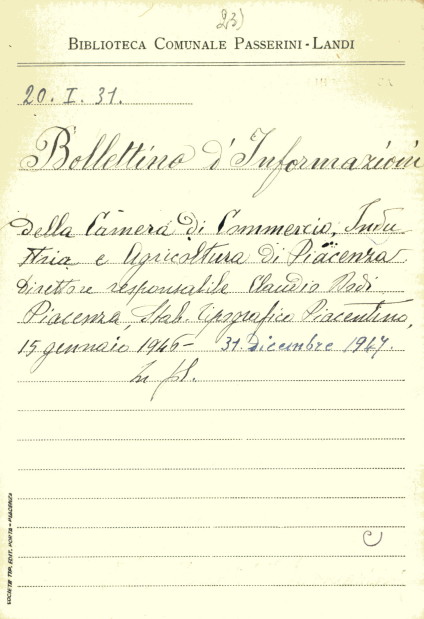 23)
BIBLIOTECA COMUNALE PASSERINI-LANDI
20. I. 31.
Bollettino d'Informazioni
della Camera di Commercio, Indu
stria e Agricoltura di Piacenza
Direttore responsabile Claudio
Piacenza, Stab. Tipografico Piacentino,
15 gennaio 1946- 31 Dicembre 1947.
In fol.
SOCIETÀ TIP. EDIT. PORTA - PIACENZA